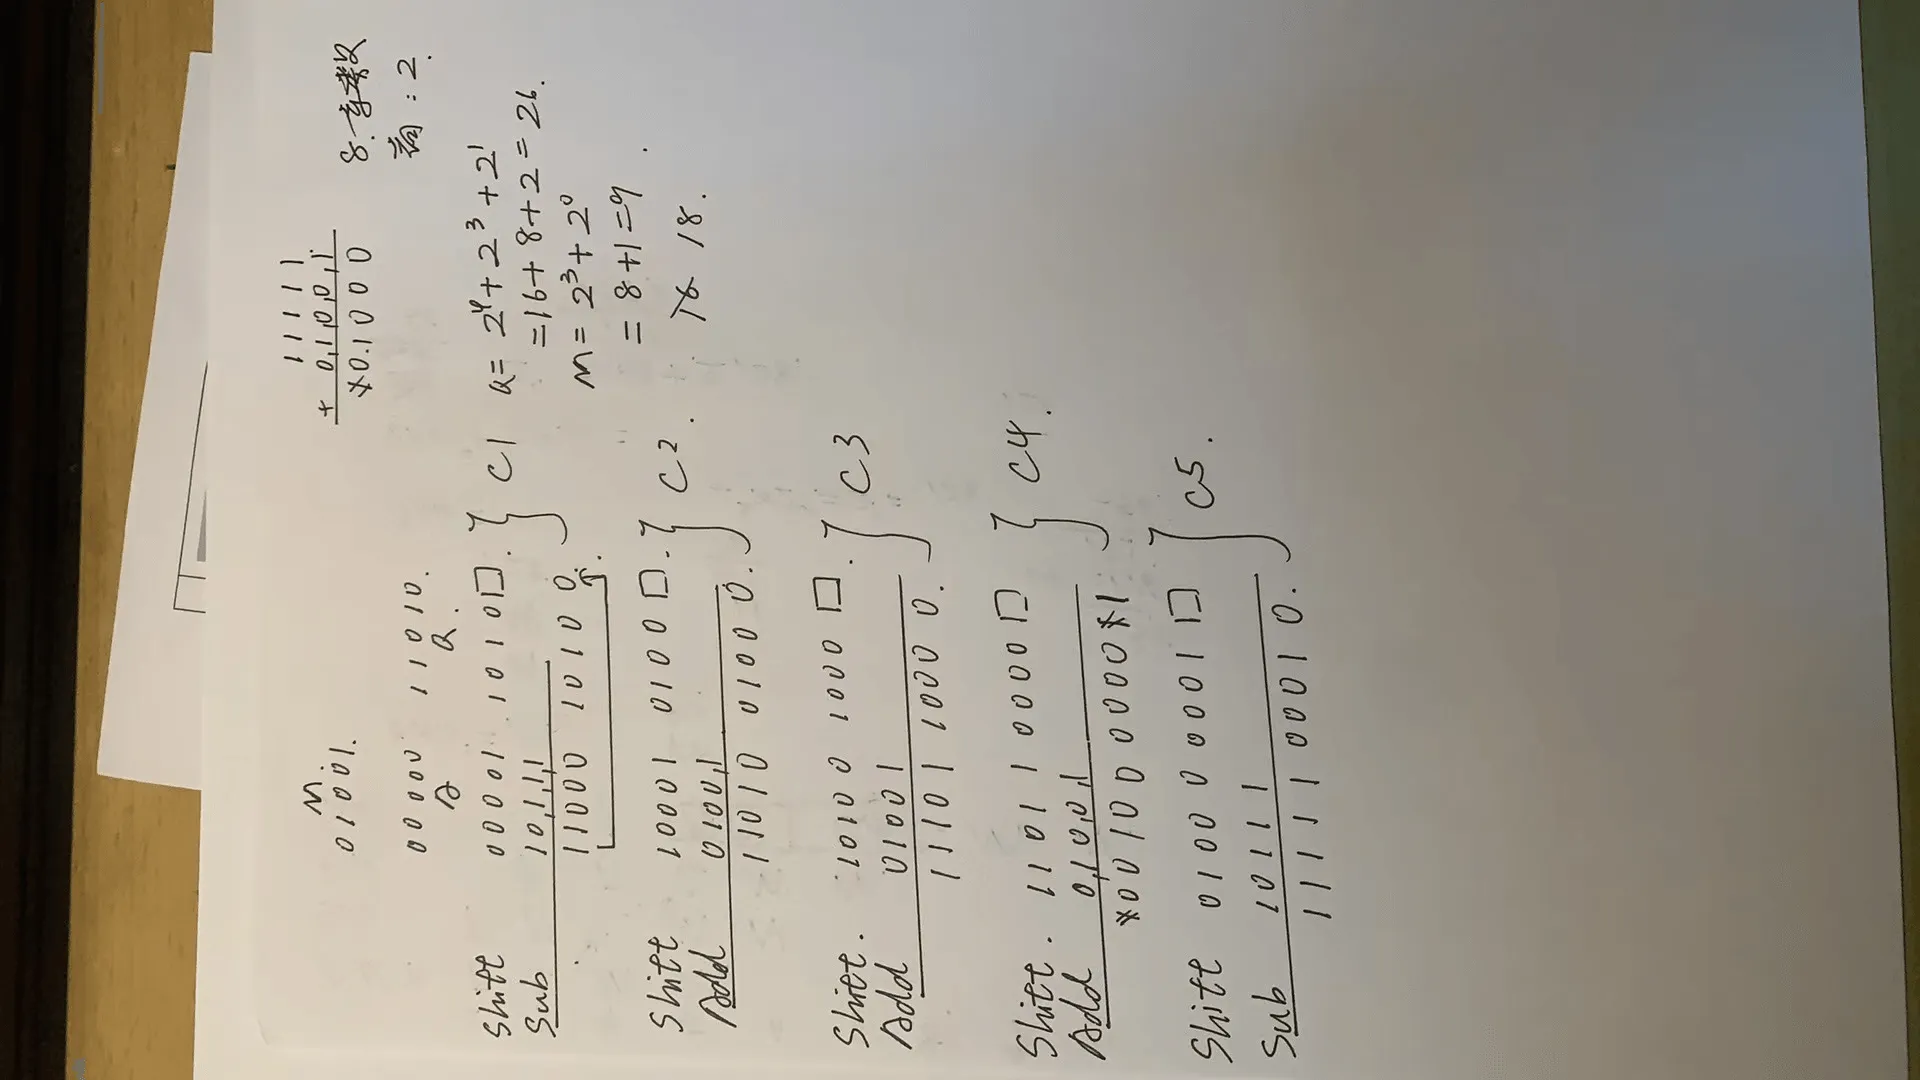 M
01001.
00000 11010.
A Q.
Shift 00001 1010□.
Sub 10111
11000 10100.
} C1
Shift 10001 0100□.
Add 01001
11010 01000.
} C2.
Shift. 10100 1000□.
Add 01001
11101 10000.
} C3
Shift. 11011 0000□
Add 01001
00100 00001
} C4.
Shift 01000 0001□
Sub 10111
11111 00010.
} C5.
11111
+ 01001
01000
8.
商:2.
Q=2⁴+2³+2¹
=16+8+2=26.
M=2³+2⁰
=8+1=9
18.